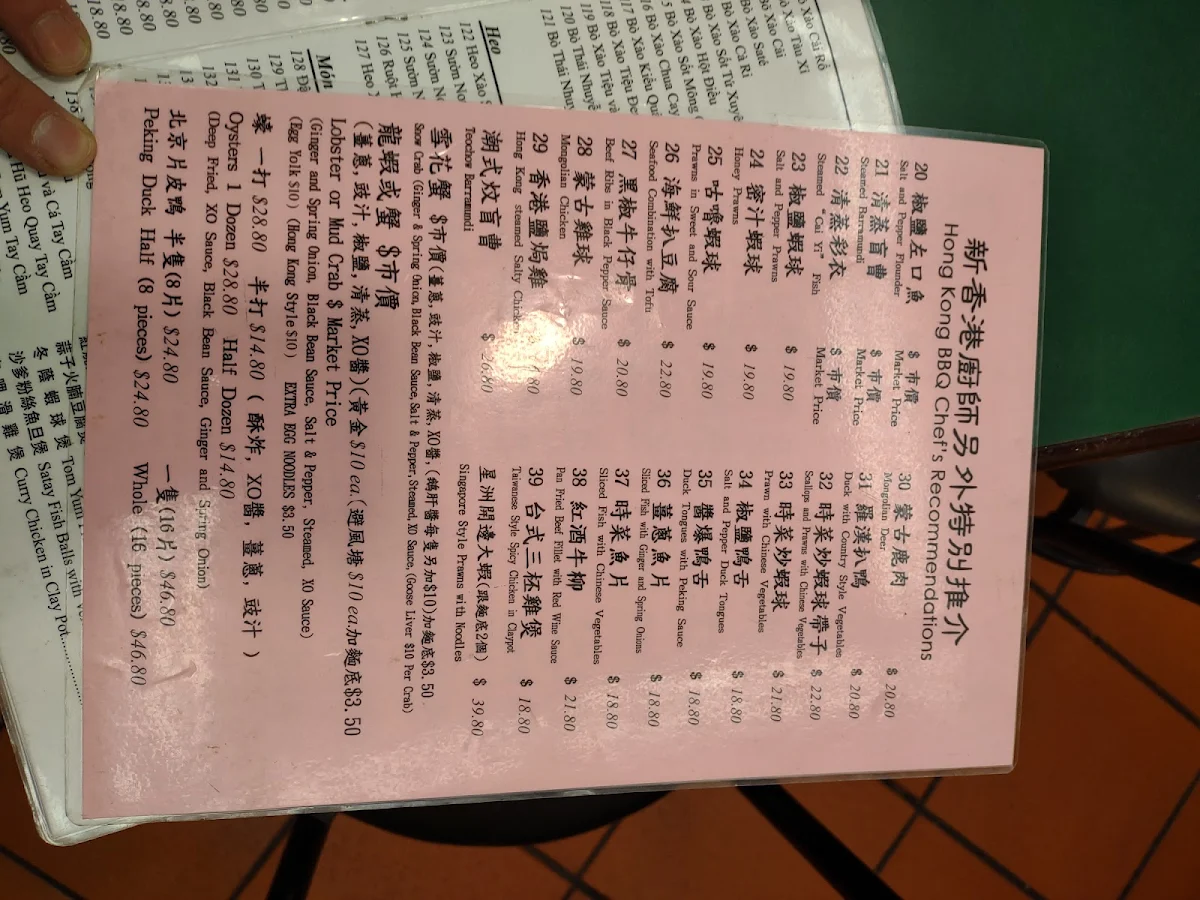 新香港廚師另外特別推介
Hong Kong BBQ Chef's Recommendations
20 椒鹽左口魚 $ 市價
Salt and Pepper Flounder Market Price
21 清蒸盲曹 $ 市價
Steamed Barramundi Market Price
22 清蒸彩衣 $ 市價
Steamed "Cai Yi" Fish Market Price
23 椒鹽蝦球 $ 19.80
Salt and Pepper Prawns
24 密汁蝦球 $ 19.80
Honey Prawns
25 咕嚕蝦球 $ 19.80
Prawns in Sweet and Sour Sauce
26 海鮮扒豆腐 $ 22.80
Seafood Combination with Tofu
27 黑椒牛仔骨 $ 20.80
Beef Ribs in Black Pepper Sauce
28 蒙古雞球 $ 19.80
Mongolian Chicken
29 香港鹽焗雞 .80
Hong Kong steamed Salty Chicken
潮式炆盲曹 $ 26.80
Teochow Barramundi
30 蒙古鹿肉 $ 20.80
Mongolian Deer
31 羅漢扒鴨 $ 20.80
Duck with Country Style Vegetables
32 時菜炒蝦球帶子 $ 22.80
Scallops and Prawns with Chinese Vegetables
33 時菜炒蝦球 $ 21.80
Prawn with Chinese Vegetables
34 椒鹽鴨舌 $ 18.80
Salt and Pepper Duck Tongues
35 醬爆鴨舌 $ 18.80
Duck Tongues with Peking Sauce
36 薑蔥魚片 $ 18.80
Sliced Fish with Ginger and Spring Onions
37 時菜魚片 $ 18.80
Sliced Fish with Chinese Vegetables
38 紅酒牛柳 $ 21.80
Pan Fried Beef Fillet with Red Wine Sauce
39 台式三杯雞煲 $ 18.80
Taiwanese Style Spicy Chicken in Claypot
星洲開邊大蝦(跟麵底2個) $ 39.80
Singapore Style Prawns with Noodles
雪花蟹 $市價(薑蔥,豉汁,椒鹽,清蒸,XO醬,(鵝肝醬每隻另加$10)加麵底$3.50
Snow Crab (Ginger & Spring Onion, Black Bean Sauce, Salt & Pepper, Steamed, XO Sauce, (Goose Liver $10 Per Crab)
龍蝦或蟹 $市價
(薑蔥,豉汁,椒鹽,清蒸,XO醬)(黃金$10 ea.(避風塘$10 ea.加麵底$3.50
Lobster or Mud Crab $ Market Price
(Ginger and Spring Onion, Black Bean Sauce, Salt & Pepper, Steamed, XO Sauce)
(Egg Yolk $10) (Hong Kong Style $10) EXTRA EGG NOODLES $3.50
蠔 一打 $28.80 半打 $14.80 ( 酥炸, XO醬, 薑蔥, 豉汁 )
Oysters 1 Dozen $28.80 Half Dozen $14.80
(Deep Fried, XO Sauce, Black Bean Sauce, Ginger and Spring Onion)
北京片皮鴨 半隻(8片) $24.80 一隻(16片) $46.80
Peking Duck Half (8 pieces) $24.80 Whole (16 pieces) $46.80
Bò Xào Tàu Xì
Bò Xào Cải
Bò Xào Satê
Bò Xào Cà Ri
Bò Xào Sốt Tứ Xuyê
Bò Xào Hột Điều
Bò Xào Sốt Mông
Bò Xào Chua Cay
117 Bò Xào Kiểu
118 Bò Xào Tiêu Đe
119 Bò Xào Tiêu và
120 Bò Thái Nhuyễ
121 Bò Thái Nhuy
Heo
122 Heo Xào
123 Sườn
124 Sườn
125 Sườn
126 Ruột
127 Heo
Món
128
129
130
131
132
18.80
Hũ Heo Quay Tay Cầm
Yum Tay Cầm
và Cá Tay Cầm
冬蔭蝦球煲 Tom Yum
沙爹粉絲魚旦煲 Satay Fish Balls with
滑雞煲 Curry Chicken in Clay Pot